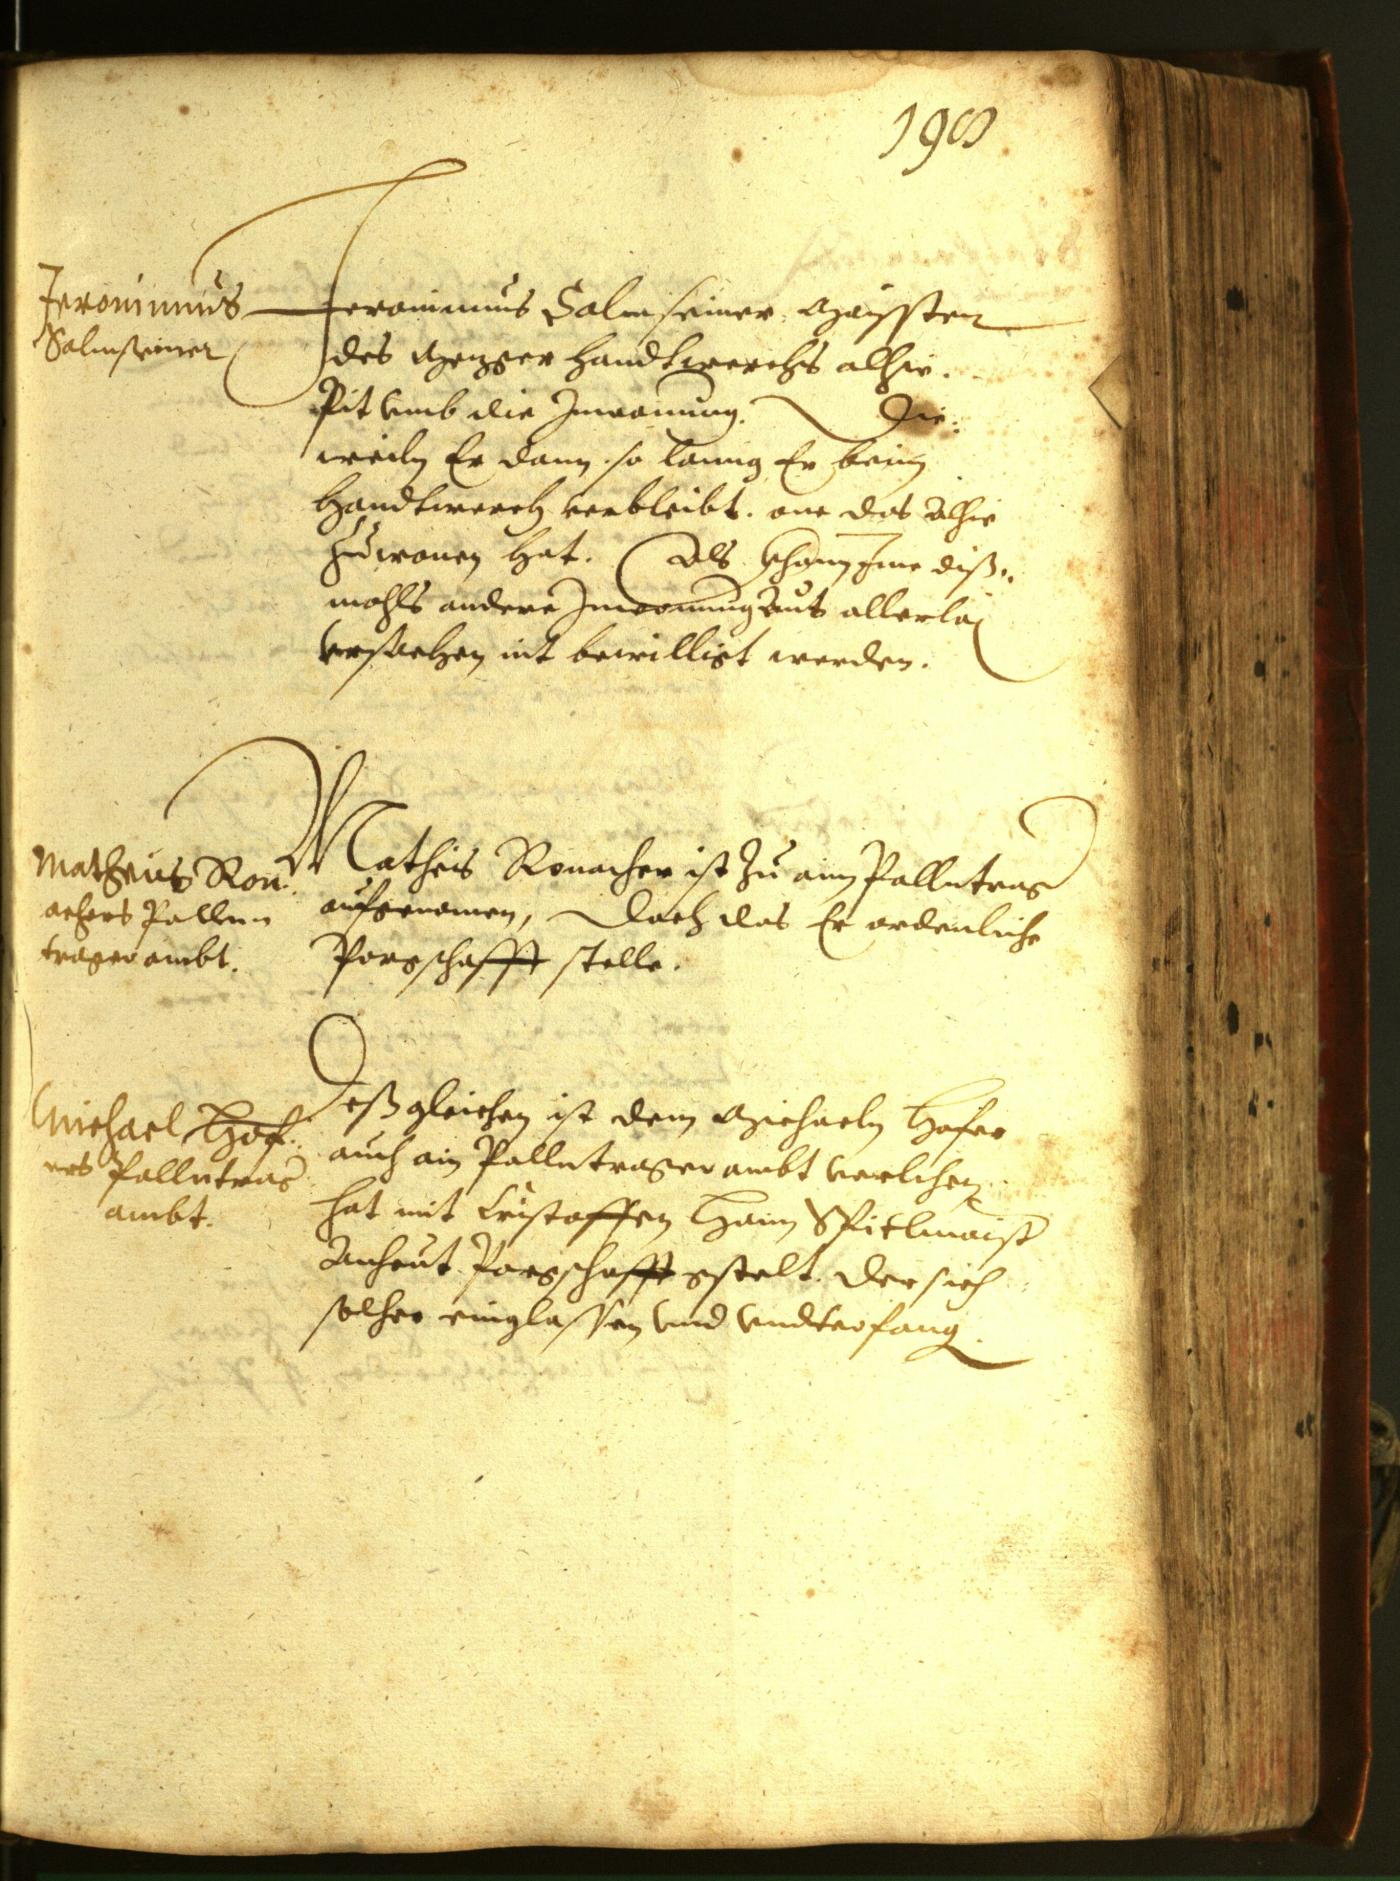 198
Jeronimus
Salmseiner
Jeronimus Salmseiner Maister
des Mezger Handtwerchs alhie.
Pit vmb die Inwonung. Die-
weiln Er dann so lanng Er beim
Handtwerch verbleibt. one das alhie
Zuwonen hat. Als khann Ime diß-
mahls andere Inwonung aus allerlaj
vrsachen nit bewilligt werden.
Matheus Ron-
achers Pallen
trager ambt.
Matheis Ronacher ist Zu aim Pallntrag
aufgenomen, doch das Er ordenliche
Porgschafft stelle.
Michael Hof-
ers Pallntrag
ambt.
Deßgleichen ist dem Michaeln Hofer
auch ain Pallntrager ambt verlihen,
hat mit Cristoffen Hann Spitlmaister
Anheut Porgschafft gstelt. Der sich
solher einglassen vnd vndterfang.